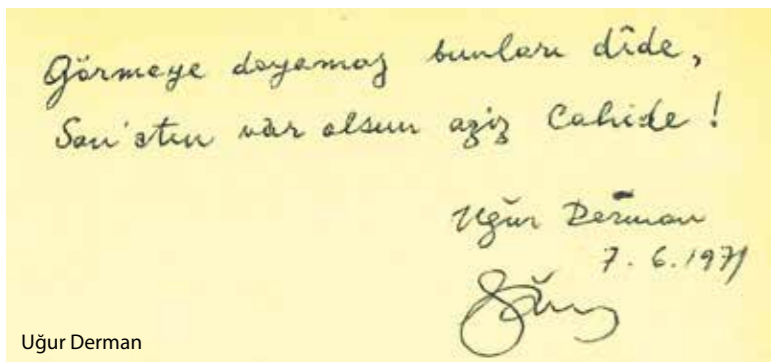 Görmeye doyamaz bunları dîde,
San'atın vâr olsun aziz Cahide !
Uğur Derman
7.6.1971
Uğur Derman